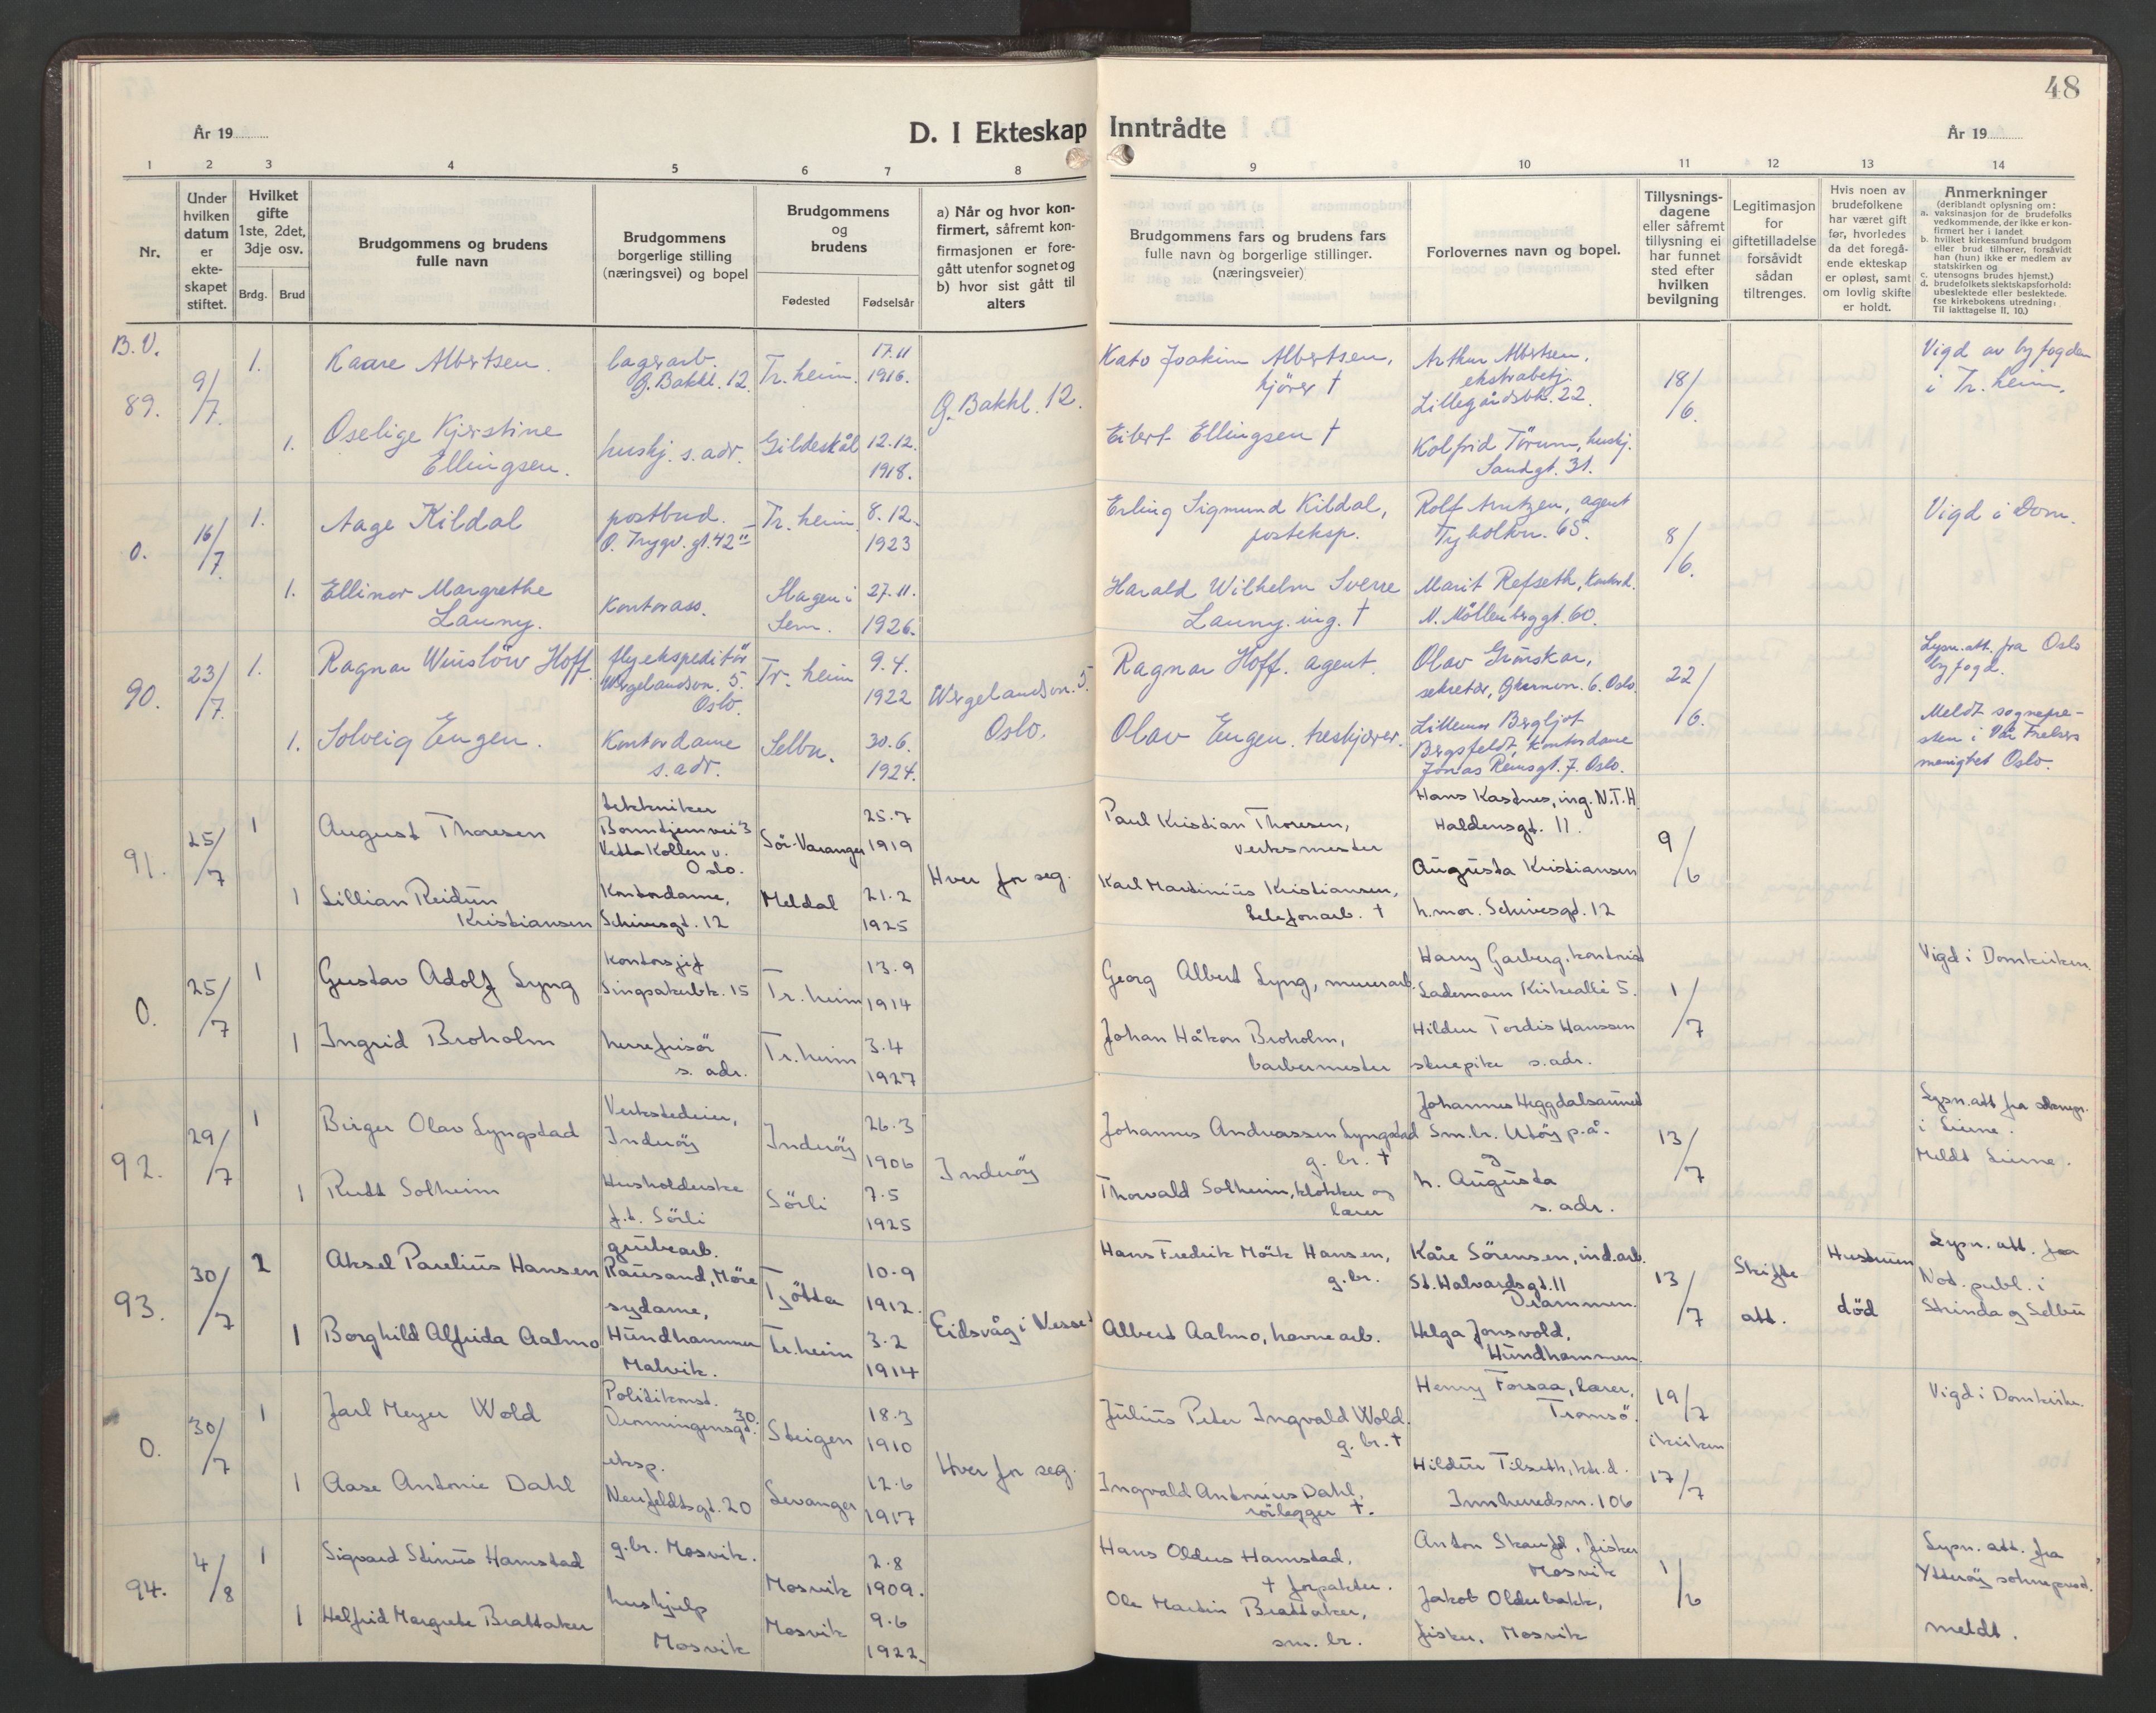 48
År 19
D. I Ekteskap Inntrådte
År 19
1 2 3 4 5 6 7 8 9 10 11 12 13 14
Nr.
Under hvilken datum er ekte-skapet stiftet.
Hvilket gifte 1ste, 2det, 3dje osv.
Brdg. Brud
Brudgommens og brudens fulle navn
Brudgommens borgerlige stilling (næringsvei) og bopel
Brudgommens og brudens
Fødested Fødselsår
a) Når og hvor kon-firmert, såfremt kon-firmasjonen er fore-gått utenfor sognet og b) hvor sist gått til alters
Brudgommens fars og brudens fars fulle navn og borgerlige stillinger. (næringsveier)
Forlovernes navn og bopel.
Tillysnings-dagene eller såfremt tillysning ei har funnet sted efter hvilken bevilgning
Legitimasjon for giftetilladelse forsåvidt sådan tiltrenges.
Hvis noen av brudefolkene har været gift før, hvorledes da det foregå-ende ekteskap er opløst, samt om lovlig skifte er holdt.
Anmerkninger
(deriblandt oplysning om:
a. vaksinasjon for de brudefolks vedkommende, der ikke er kon-firmert her i landet
b. hvilket kirkesamfund brudgom eller brud tilhører, forsåvidt han (hun) ikke er medlem av statskirken og
c. utensogns brudes hjemst.)
d. brudefolkets slektskapsforhold: ubeslektede eller beslektede.
(se kirkebokens utredning: Til iakttagelse II, 10.)
B.V.
89. 9/7. 1. Kaare Albertsen. lagerarb. Ø. Bakkl. 12. Tr.heim. 17.11 1916.
Ø. Bakkl. 12.
Kato Joakim Albertsen, kjører †
Arthur Albertsen, ekstrabetj. Lillegårdsbk. 22.
18/6.
Vigd av byfogden i Tr.heim.
1. Oselige Kjerstine Ellingsen. huskj. s. adr. Gildeskål 12.12. 1918.
Eilert Ellingsen †
Kolfrid Tørum, huskj. Sandgt. 31.
0. 16/7. 1. Aage Kildal postbud. O. Trygv. gt. 42 II Tr.heim 8.12. 1923
Erling Sigmund Kildal, posteksp.
Rolf Arntzen, agent Tyholtvn. 65.
8/6.
Vigd i Dom.
1. Ellinor Margrethe Launy. Kontorass. Slagen i Sem. 27.11. 1926.
Harald Wilhelm Sverre Launy. ing. †
Marit Refseth, Kontord. N. Möllenberggt. 60.
90. 23/7. 1. Ragnar Winslöw Hoff. flyekspeditör Wergelandsvn. 5. Oslo. Tr.heim 9.4. 1922
Wergelandsvn. 5. Oslo.
Ragnar Hoff. agent.
Olav Grimskar, sekretær, 6. Oslo.
22/6.
Lysn.att. fra Oslo byfogd.
1. Solveig Engen. Kontordame s. adr. Selbu. 30.6. 1924.
Olav Engen. treskjærer.
Lillemor Bergljot Bergsfeldt, kontordame Jonas Reinsgt. 7. Oslo.
Meldt sognepre-sten i Vår Frelsers menighet Oslo.
91. 25/7 1 August Thoresen tekniker Bonntjernvei 3 Vettakollen v. Oslo. Sör-Varanger 25.7 1919
Hver for seg.
Paul Kristian Thoresen, verksmester
Hans Kastnes, ing. N.T.H. Haldensgt. 11.
9/6
1 Lillian Reidun Kristiansen Kontordame, Schivesgt. 12 Meldal 21.2 1925
Karl Martinius Kristiansen, telefonarb. †
Augusta Kristiansen h.mor. Schivesgt. 12
0. 25/7 1 Gustav Adolf Lyng Kontorsjef Singsakerbk. 15 Tr.heim 13.9 1914
Georg Albert Lyng, murerarb.
Harry Garberg, kontorist Lademoen Kirkealle 5.
1/7
Vigd i Domkirken.
1 Ingrid Broholm herrefrisör s. adr. Tr.heim 3.4 1927
Johan Håkon Broholm, barbermester
Hildur Tordis Hanssen stuepike s. adr.
92. 29/7 1 Birger Olav Lyngstad Verkstedeier, Inderöy Inderöy 26.3 1906
Inderöy
Johannes Andreassen Lyngstad g. br. †
Johannes Heggdalsaunet Sm.br. Utöy p.å. og
13/7
Lysn.att fra i Lierne. Meldt Lierne.
1 Rutt Solheim Husholderske f.t. Sörli Sörli 7.5 1925
Thorvald Solheim, klokker og lærer
h. Augusta s. adr.
93. 30/7 2 Aksel Parelius Hansen grubearb. Rausand, Möre Tjötta 10.9 1912.
Eidsvåg i Nesset
Hans Fredrik Mörk Hansen, g. br.
Kåre Sörensen, ind.arb. St. Halvardsgt. 11 Drammen.
13/7
Skifte att.
Hustruen död
Lysn. att. fra Not. publ. i Strinda og Selbu
1 Borghild Alfrida Aalmo sydame, Hundhammer Malvik. Tr.heim 3.2 1914
Albert Aalmo, havnearb.
Helga Jonsvold, Hundhammen.
0. 30/7 1 Jarl Meyer Wold Politikonst. Dronningensgt. 30. Steigen 18.3 1910
Hver for seg.
Julius Peter Ingvald Wold. g. br. †
Henry Forsaa, lærer, Tromsö.
19/7 i kirken
Vigd i Domkirke.
1 Aase Antonie Dahl eksp. Neufeldtsgt. 20 Levanger 12.6 1917
Ingvald Antonius Dahl, rörlegger †.
Hildur Tilseth, ktr.d. Innherredsvn. 106
17/7
94. 4/8 1 Sigvard Stinius Hamstad g.br. Mosvik. Mosvik 2.8 1909.
Hans Oldus Hamstad, † forpakter.
Anton Skavfjel, fisker Mosvik
1/6
Lysn. att. fra Ytteröy
1 Helfrid Margrete Brattaker hushjelp Mosvik Mosvik 9.6 1922.
Ole Martin Brattaker, sm. br.
Jakob Olderbakk, fisker, Mosvik
meldt.